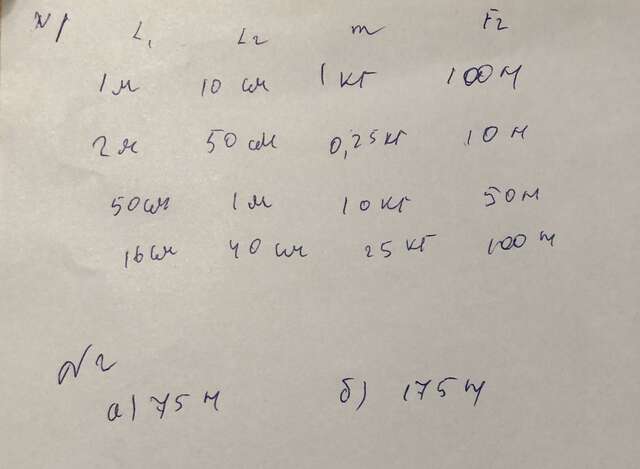 N1 L₁ L₂ m F₂
1м 10 см 1 кг 100н
2м 50 см 0,25кг 10н
50см 1м 10кг 50н
16см 40 см 25 кг 100н
N2
а) 75 н б) 175 н